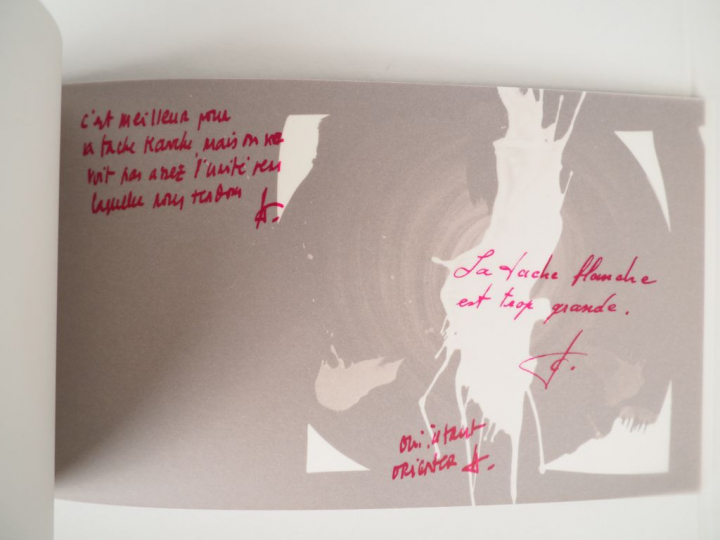 c'est meilleur pour
la tache blanche mais on ne
voit pas assez l'unité vers
laquelle nous tendons
A.
La tache blanche
est trop grande.
oui il faut
orienter A.